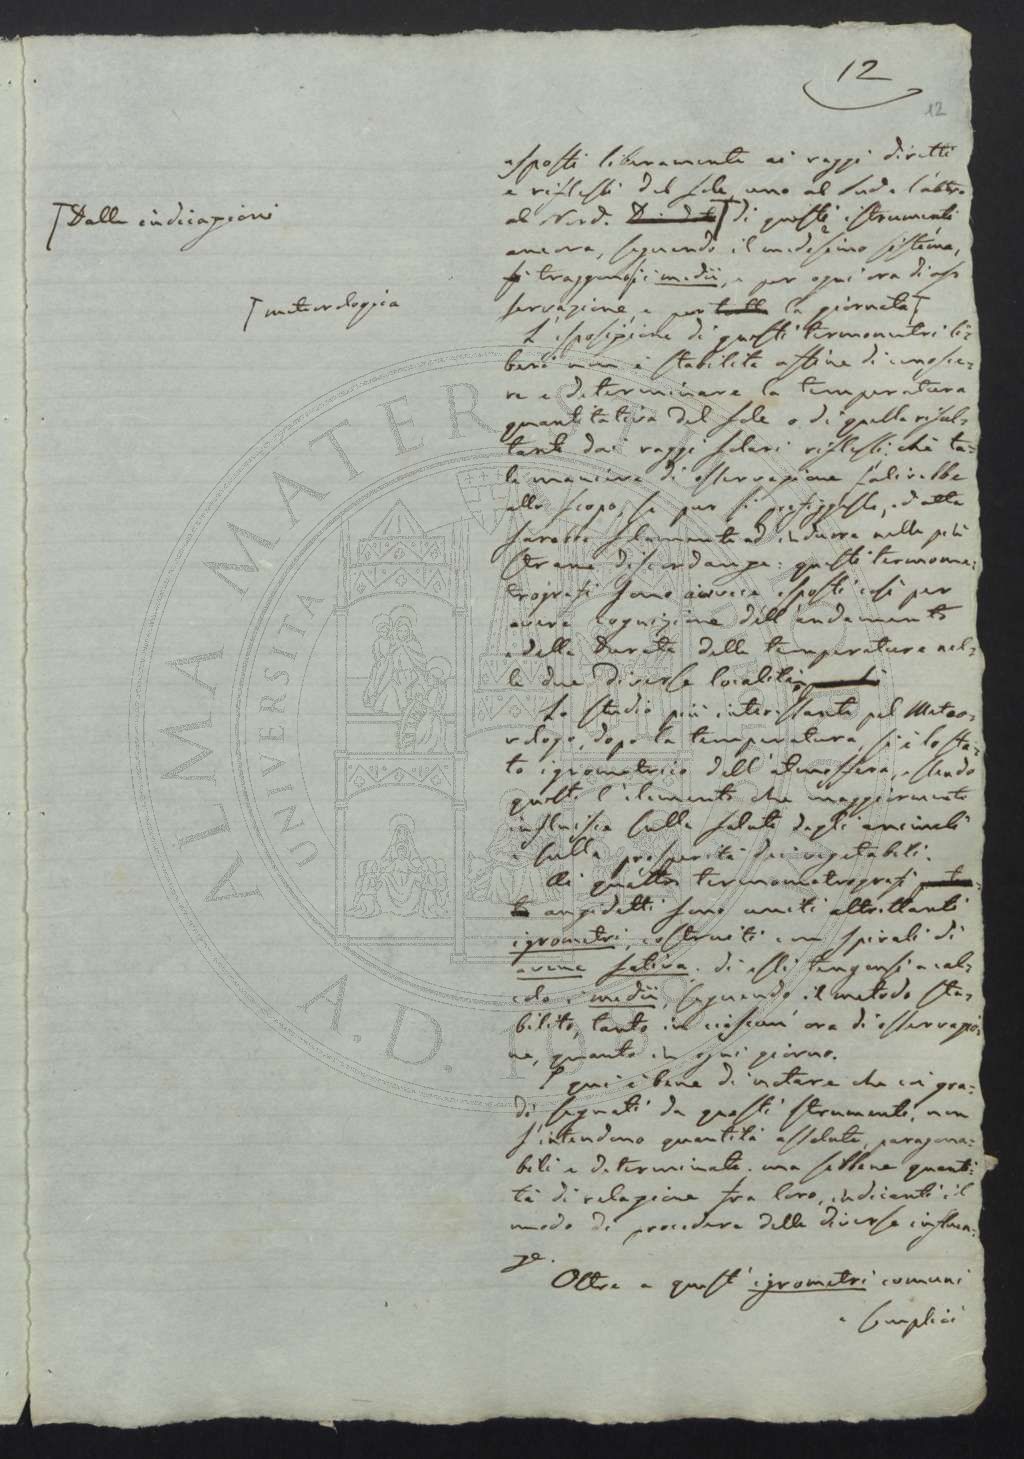 12
12
Dalle indicazioni
meteorologica
esposti liberamente ai raggi diretti
e riflessi del sole, uno al Sud e l'altro
al Nord. di questi istrumenti
ancora, seguendo il medesimo sistema,
si traggono i medii, e per ogni ora di os-
servazione, e per la giornata
L'esposizione di questi termometri li-
beri non è stabilita affine di conosce-
re e determinare la temperatura
quantitativa del sole o di quella risul-
tante dai raggi solari riflessi; chè ta-
le maniera di osservazione fallirebbe
allo scopo, se pur si prefiggesse, ed atta
sarebbe solamente ad indurre nelle più
strane discordanze: questi termome-
trografi sono invece esposti così per
avere cognizione dell'andamento
e della durata della temperatura nel-
le due diverse località
Lo studio più interessante pel Meteo-
rologo, dopo la temperatura, si è lo sta-
to igrometrico dell'atmosfera, essendo
questo l'elemento che maggiormente
influisce sulla salute degli animali
e sulla prosperità dei vegetabili.
Ai quattro termometrografi
anzidetti sono uniti altrettanti
igrometri, costruiti con spirali di
avena sativa. di essi tengonsi a cal-
colo i medii, seguendo il metodo sta-
bilito, tanto in ciascun' ora di osservazio-
ne, quanto in ogni giorno.
E qui è bene di notare che coi gra-
di segnati da questi strumenti, non
s'intendono quantità assolute, paragona-
bili e determinate. ma sibbene quanti-
tà di relazione fra loro, indicanti il
modo di procedere delle diverse influen-
ze.
Oltre a questi igrometri comuni
e semplici